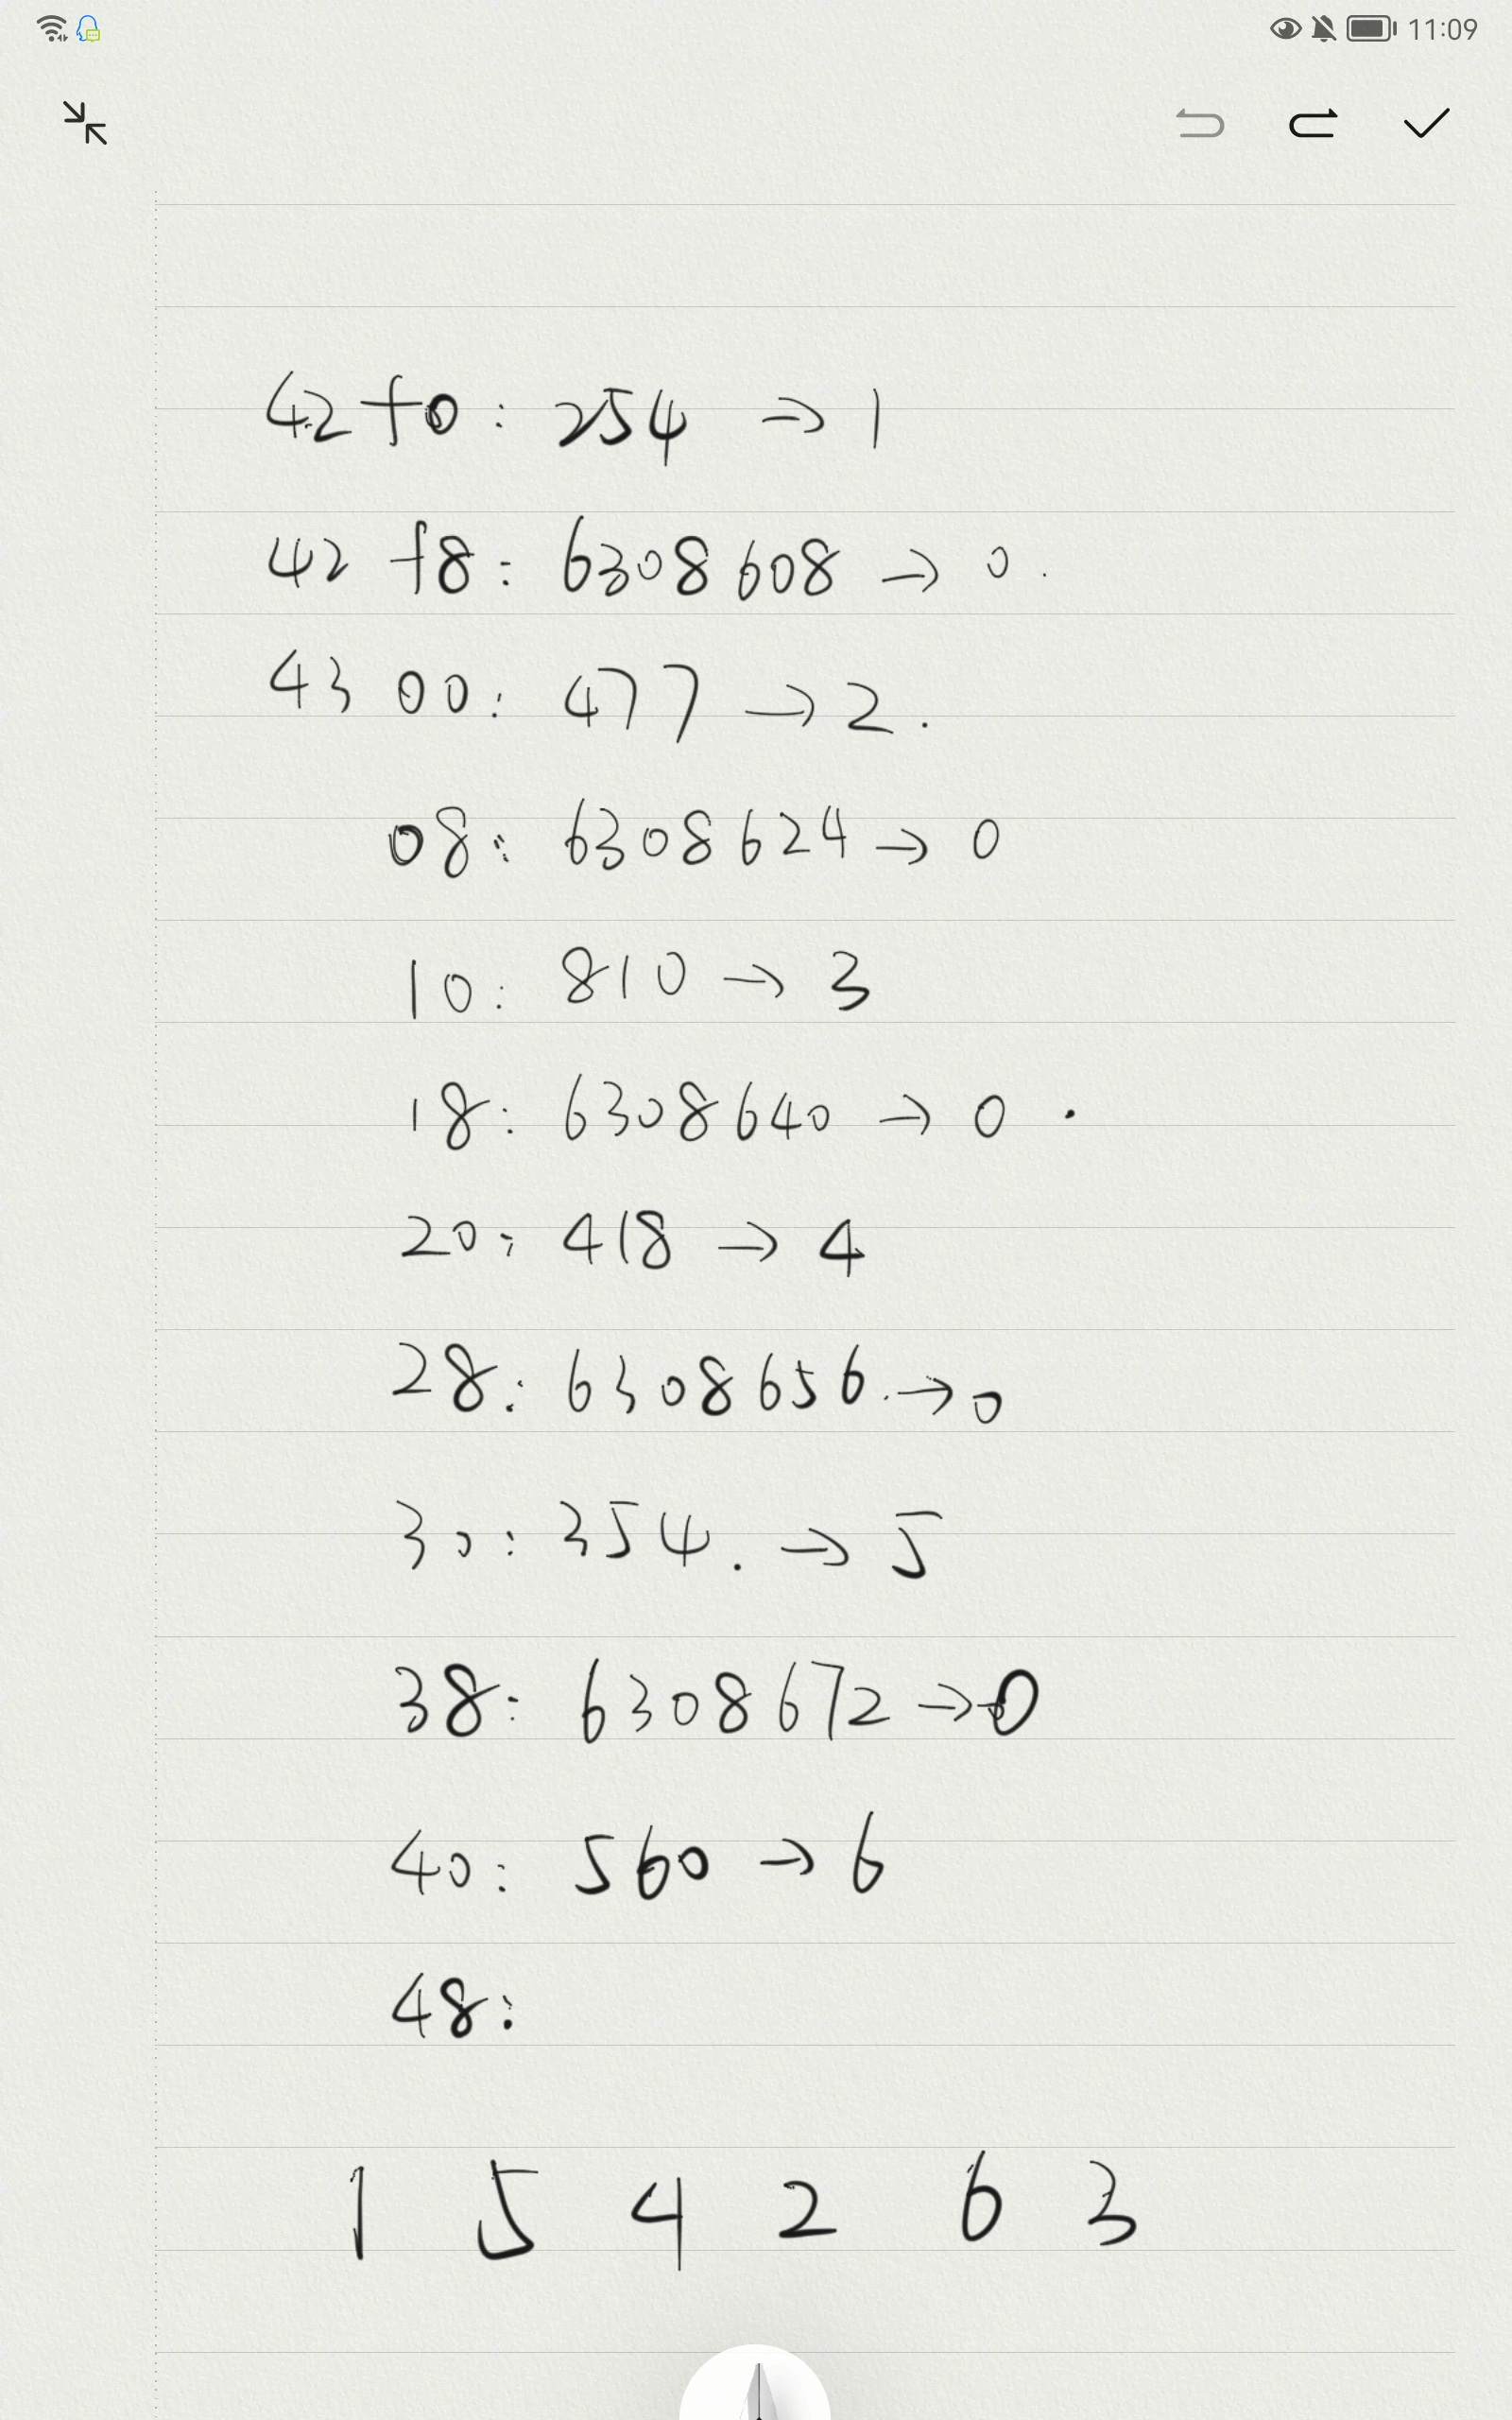 11:09
42f0: 254 → 1
42 f8: 6308608 → 0.
43 00: 477 → 2.
08: 6308624 → 0
10: 810 → 3
18: 6308640 → 0.
20: 418 → 4
28: 6308656. → 0
30: 354. → 5
38: 6308672 → 0
40: 560 → 6
48:
1 5 4 2 6 3